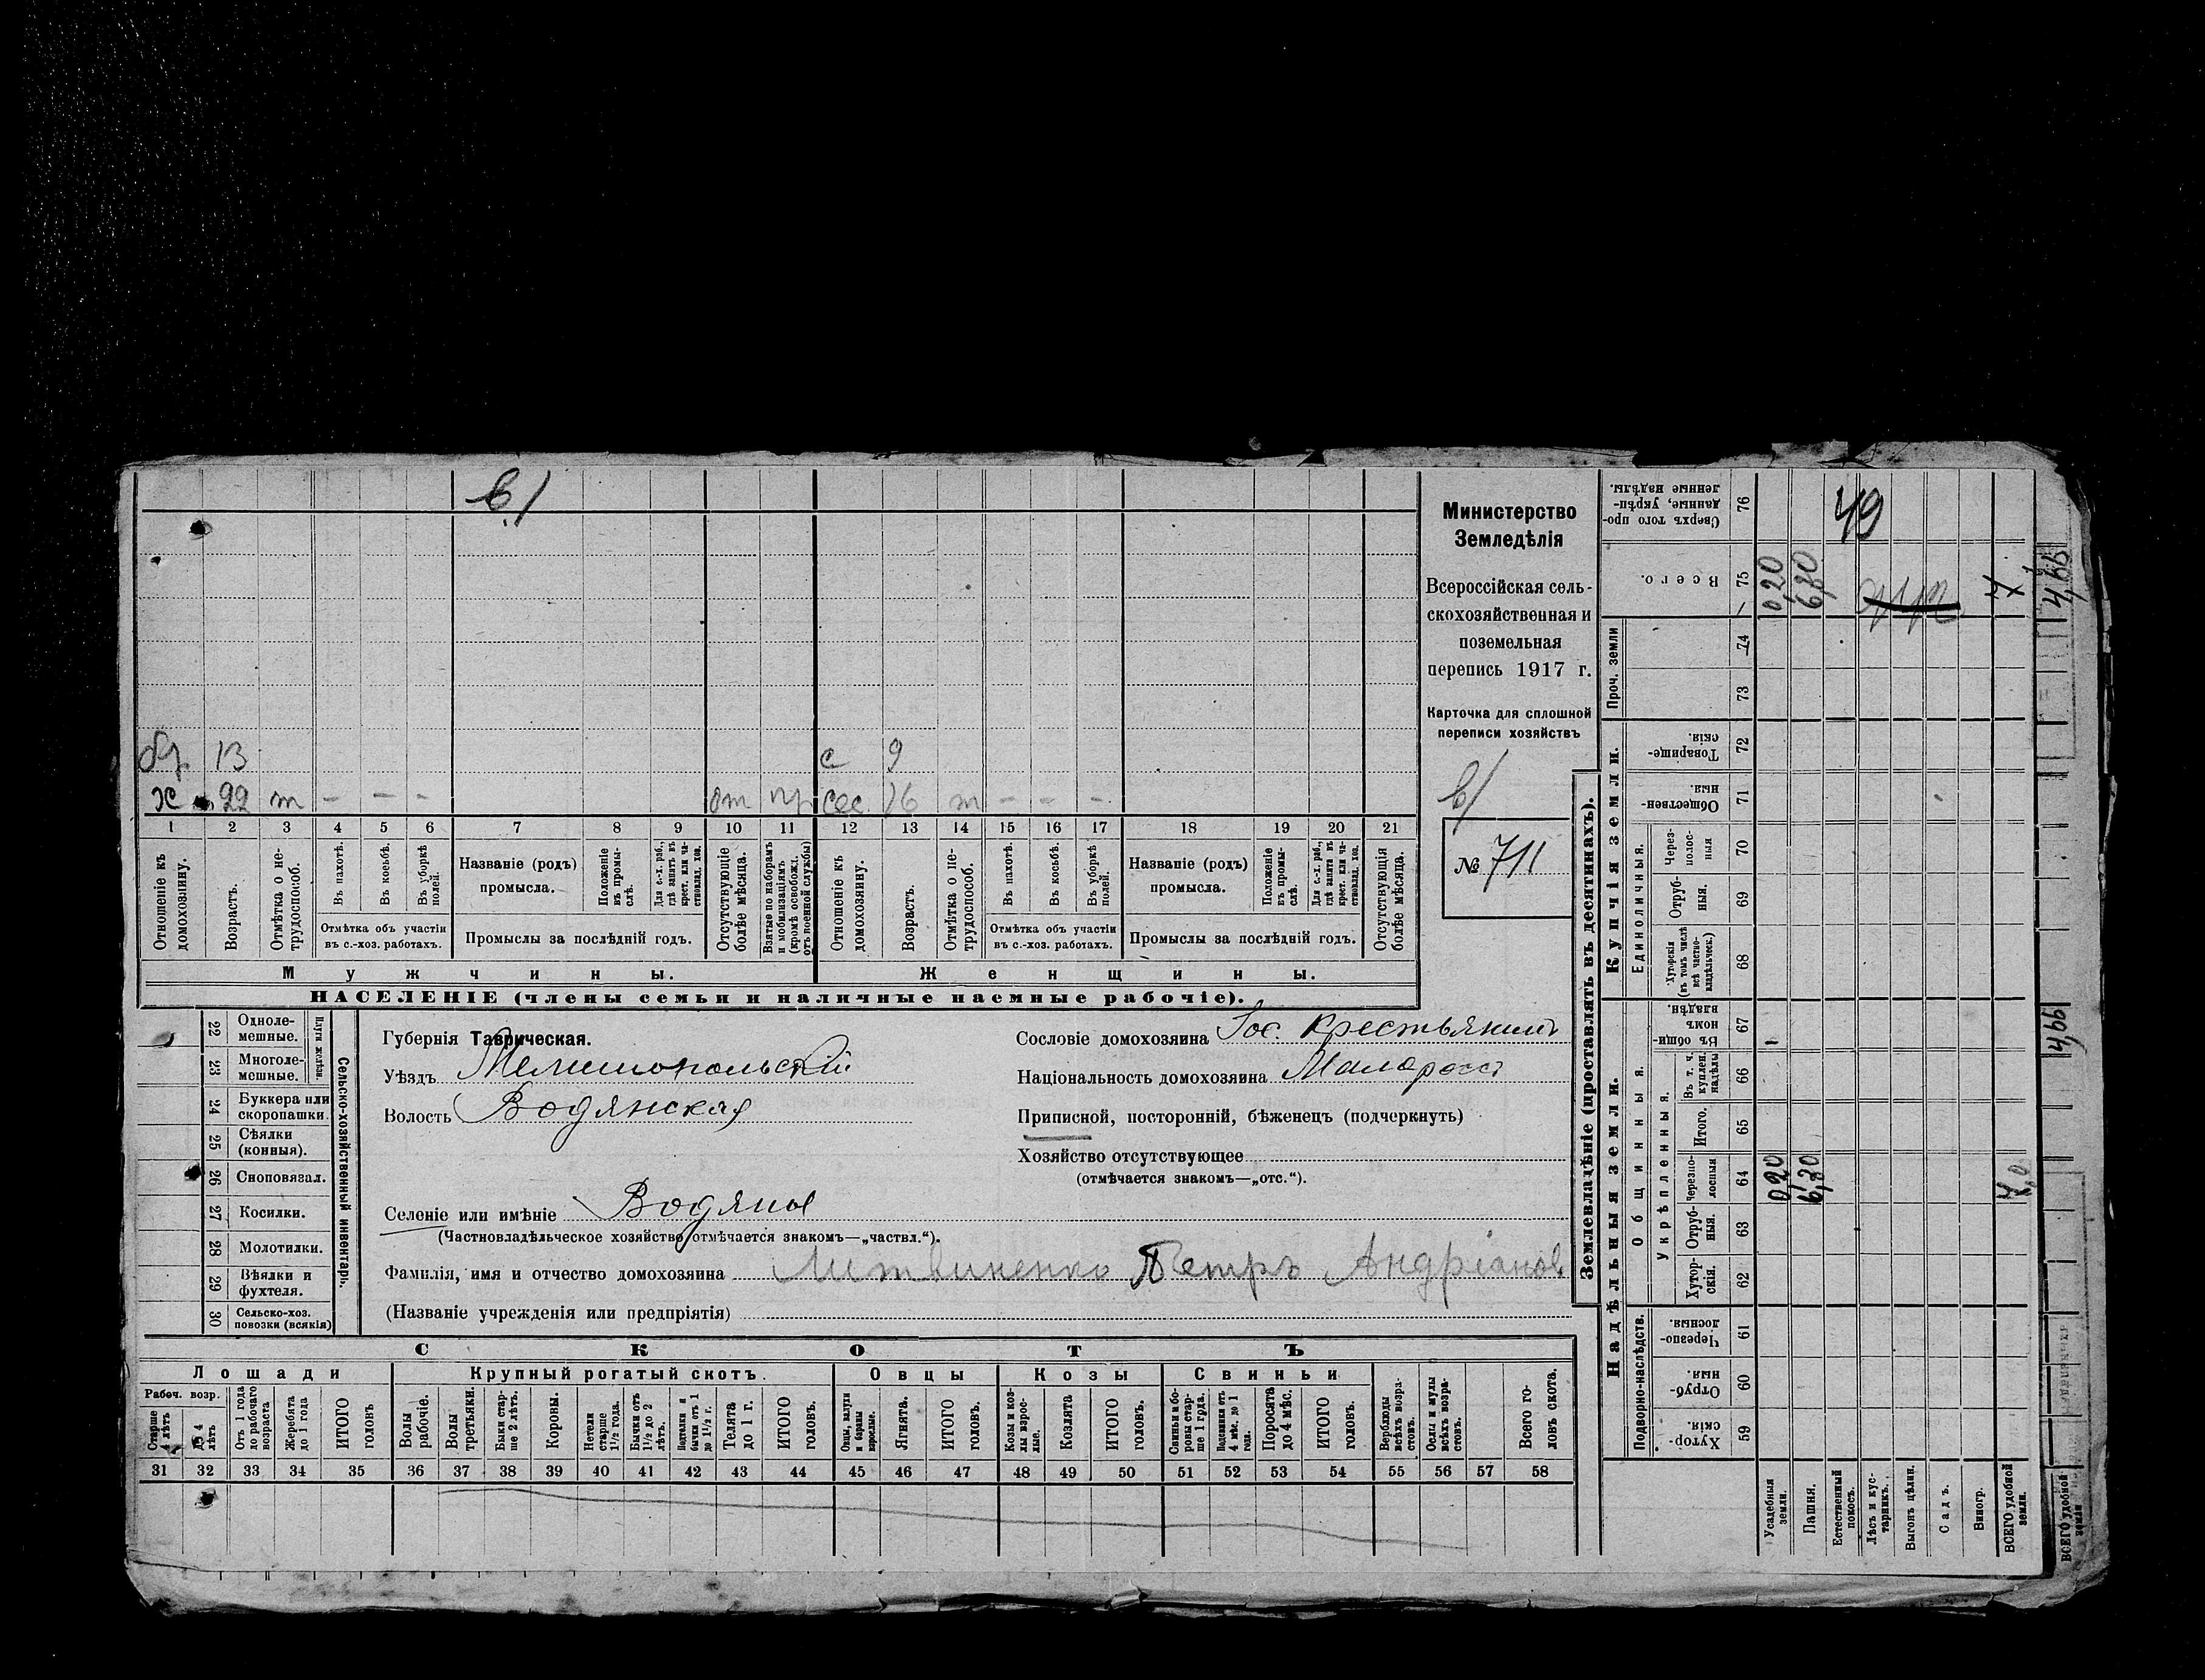 в/
бр. 13 с 9
х 22 т - - - от пр сес. 16 т - - -
1 2 3 4 5 6 7 8 9 10 11 12 13 14 15 16 17 18 19 20 21
Отношеніе къ домохозяину.
Возрастъ.
Отмѣтка о нетрудоспособ.
Въ пахотѣ.
Въ косьбѣ.
Въ уборкѣ полей.
Отмѣтка объ участіи
въ с.-хоз. работахъ.
Названіе (родъ)
промысла.
Положеніе въ промыслѣ.
Для с.-х. раб., гдѣ занятъ въ крест. или частновлад. хоз.
Промыслы за послѣдній годъ.
Отсутствующіе болѣе мѣсяца.
Взятые по наборамъ и мобилизаціямъ (кромѣ освобожд. отъ военной службы)
Отношеніе къ домохозяину.
Возрастъ.
Отмѣтка о нетрудоспособ.
Въ пахотѣ.
Въ косьбѣ.
Въ уборкѣ полей.
Отмѣтка объ участіи
въ с.-хоз. работахъ.
Названіе (родъ)
промысла.
Положеніе въ промыслѣ.
Для с.-х. раб., гдѣ заняты въ крест. или частновлад. хоз.
Промыслы за послѣдній годъ.
Отсутствующія болѣе мѣсяца.
Мужчины. Женщины.
НАСЕЛЕНІЕ (члены семьи и наличные наемные рабочіе).
Министерство
Земледѣлія
Всероссійская сель-
скохозяйственная и
поземельная
перепись 1917 г.
Карточка для сплошной
переписи хозяйствъ
в/
№ 711
22 Одноле-
мешные.
23 Многоле-
мешные.
Плуги желѣзн.
24 Буккера или
скоропашки.
25 Сѣялки
(конныя).
26 Сноповязал.
27 Косилки.
28 Молотилки.
29 Вѣялки и
фухтеля.
30 Сельско-хоз.
повозки (всякія)
Сельско-хозяйственный инвентарь.
Губернія Таврическая.
Уѣздъ Мелитопольскій
Волость Водянская
Сословіе домохозяина Гос. крестьянинъ
Національность домохозяина Малоросс
Приписной, посторонній, бѣженецъ (подчеркнуть)
Хозяйство отсутствующее
(отмѣчается знакомъ—„отс.“).
Селеніе или имѣніе Водяны
(Частновладѣльческое хозяйство отмѣчается знакомъ—„частвл.“).
Фамилія, имя и отчество домохозяина Литвиненко Петръ Андріанов
(Названіе учрежденія или предпріятія)
СКОТЪ
Лошади Крупный рогатый скотъ. Овцы Козы Свиньи
Рабоч. возр.
Старше 4 лѣтъ
До 4 лѣтъ
Отъ 1 года до рабочаго возраста
Жеребята до 1 года
ИТОГО головъ
Волы рабочіе.
Волы третьяки.
Быки старше 2 лѣтъ.
Коровы.
Нетели старше 1½ года.
Бычки отъ 1½ до 2 лѣтъ.
Подтелки и бычки отъ 1 до 1½ г.
Телята до 1 г.
ИТОГО головъ.
Овцы, валухи и бараны взрослые.
Ягнята.
ИТОГО головъ.
Козы и козлы взрослые.
Козлята
ИТОГО головъ.
Свиньи и боровы старше 1 года.
Подсвинки отъ 4 мѣс. до 1 года.
Поросята до 4 мѣс.
ИТОГО головъ.
Верблюды всѣхъ возрастовъ.
Ослы и мулы всѣхъ возрастовъ.
Всего головъ скота.
31 32 33 34 35 36 37 38 39 40 41 42 43 44 45 46 47 48 49 50 51 52 53 54 55 56 57 58
Землевладѣніе (проставлять въ десятинахъ).
Надѣльныя земли. Купчія земли. Проч. земли
Подворно-наслѣдств.
Общинныя.
Укрѣпленныя.
Единоличныя.
Сверхъ того проданные, укрѣпленные надѣлы. 76 49
Всего. 75 0,20 6,80 7
74
73
Товарищескія. 72
Общественныя. 71
Черезполосныя 70
Отрубныя. 69
Хуторскія (въ томъ числѣ всѣ частновладѣльческ.) 68
Въ общинномъ владѣн. 67
Въ т. ч. куплен. надѣлы 66
Итого. 65
Черезполосныя 64 0,20 6,80 7,0
Отрубныя. 63
Хуторскія. 62
Черезполосныя 61
Отрубныя 60
Хуторскія. 59
Усадебныя земли.
Пашня.
Естественный покосъ.
Лѣсъ и кустарникъ.
Выгонъ цѣлин.
Садъ.
Виногр.
ВСЕГО удобной земли.
4,66
4,66
ВСЕГО удобной земли